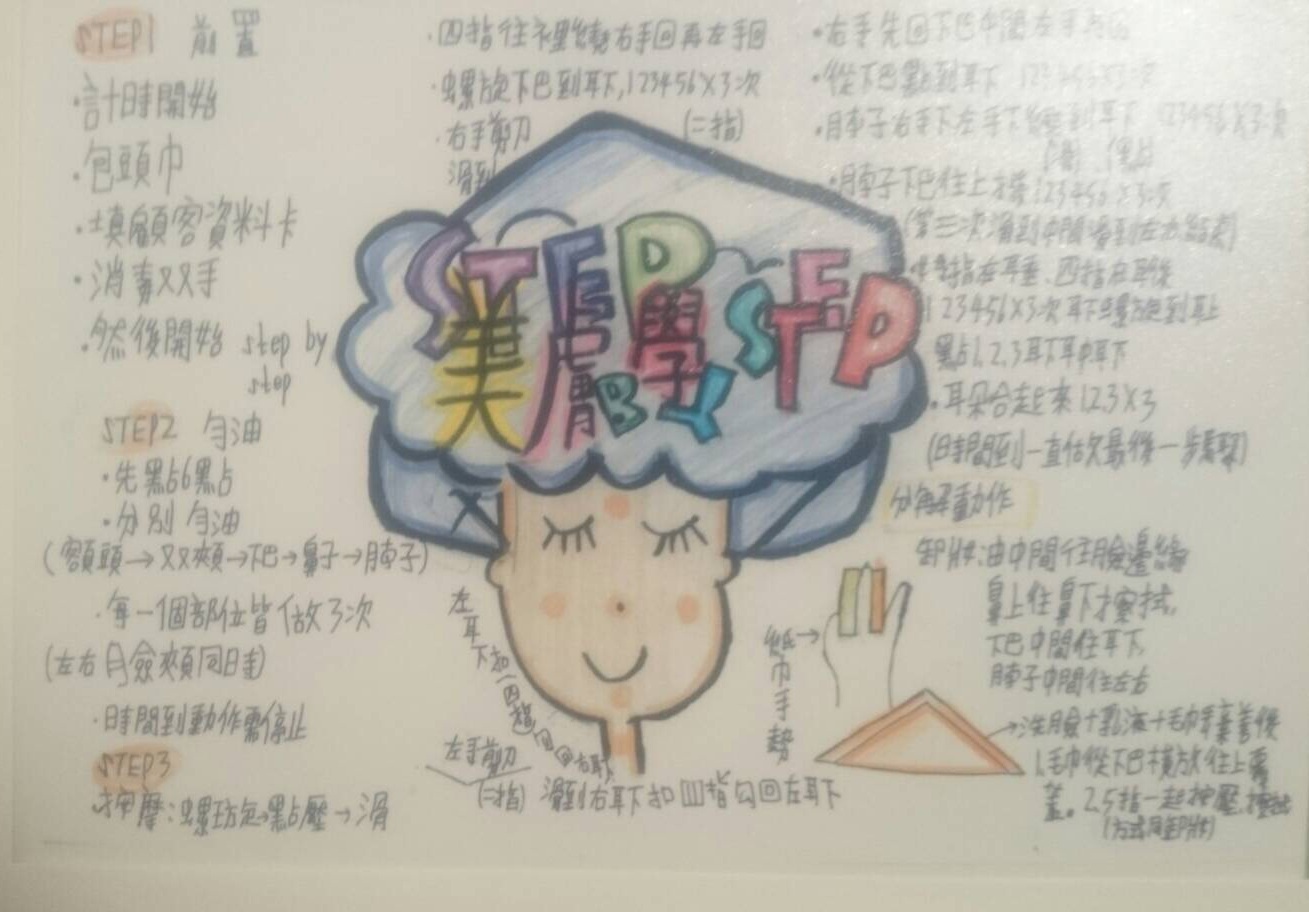 STEP1 前置
·計時開始
·包頭巾
·填顧客資料卡
·消毒双手
·然後開始 step by
step
STEP2 勻油
·先點6點
·分別勻油
(額頭→双頰→下巴→鼻子→脖子)
·每一個部位皆做3次
(左右臉頰同時)
·時間到動作需停止
STEP3
按摩:螺旋→點壓→滑
·四指往裡繞右手回再左手回
·螺旋下巴到耳下,123456X3次
·右手剪刀 (二指)
滑到
STEP BY STEP
美膚學
左耳下扣四指勾回右耳
左手剪刀
(二指) 滑到右耳下扣四指勾回左耳下
·右手先回下巴中間左手再回
·從下巴點到耳下 123456X3次
·脖子右手下左手下 到耳下 123456X3次
·脖子下巴往上 123456X3次
(第三次滑到中間 結束)
指在耳垂、四指在耳後
123456X3次耳下螺旋到耳上
點1,2,3耳下耳中耳下
·耳朵合起來123X3
(時間到一直做最後一步驟)
分解動作
卸妝:由中間往臉邊緣
鼻上往鼻下擦拭,
下巴中間往耳下
脖子中間往左右
紙巾手勢
→洗臉+乳液+毛巾 後
1,毛巾從下巴橫放往上覆
蓋。2,5指一起按壓,擦拭
(方式同卸妝)